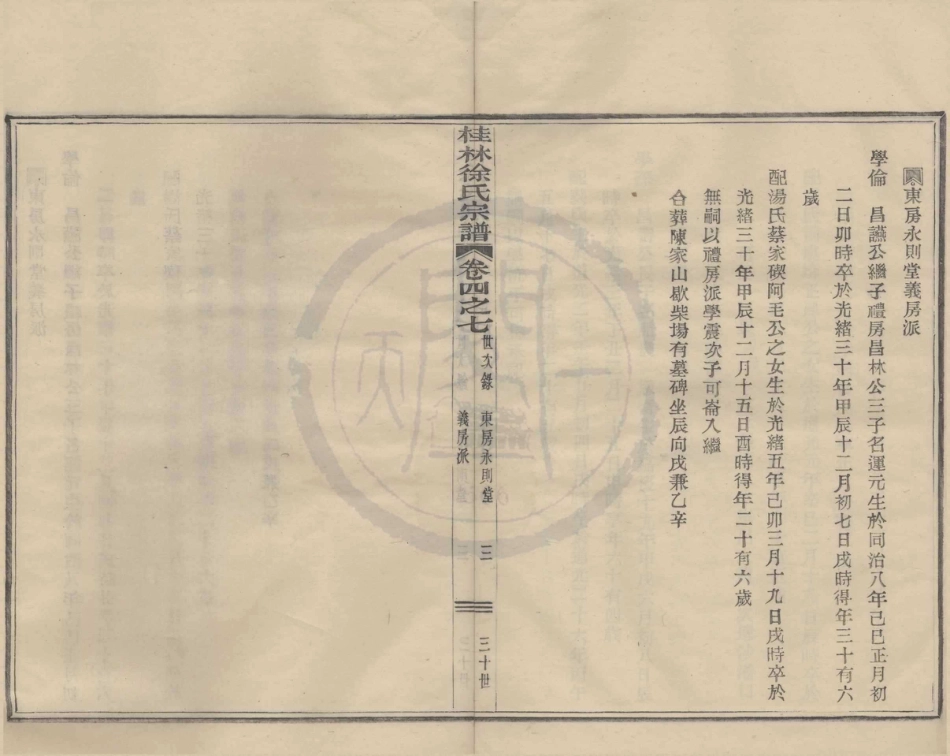 東房永則堂義房派
學倫 昌讌公繼子禮房昌林公三子名運元生於同治八年己巳正月初
二日卯時卒於光緒三十年甲辰十二月初七日戌時得年三十有六
歲
配湯氏蔡家碶阿毛公之女生於光緒五年己卯三月十九日戌時卒於
光緒三十年甲辰十二月十五日酉時得年二十有六歲
無嗣以禮房派學震次子可崙入繼
合葬陳家山歇柴場有墓碑坐辰向戌兼乙辛
桂林徐氏宗譜 卷四之七
世次錄 東房永則堂
義房派
三
三十世